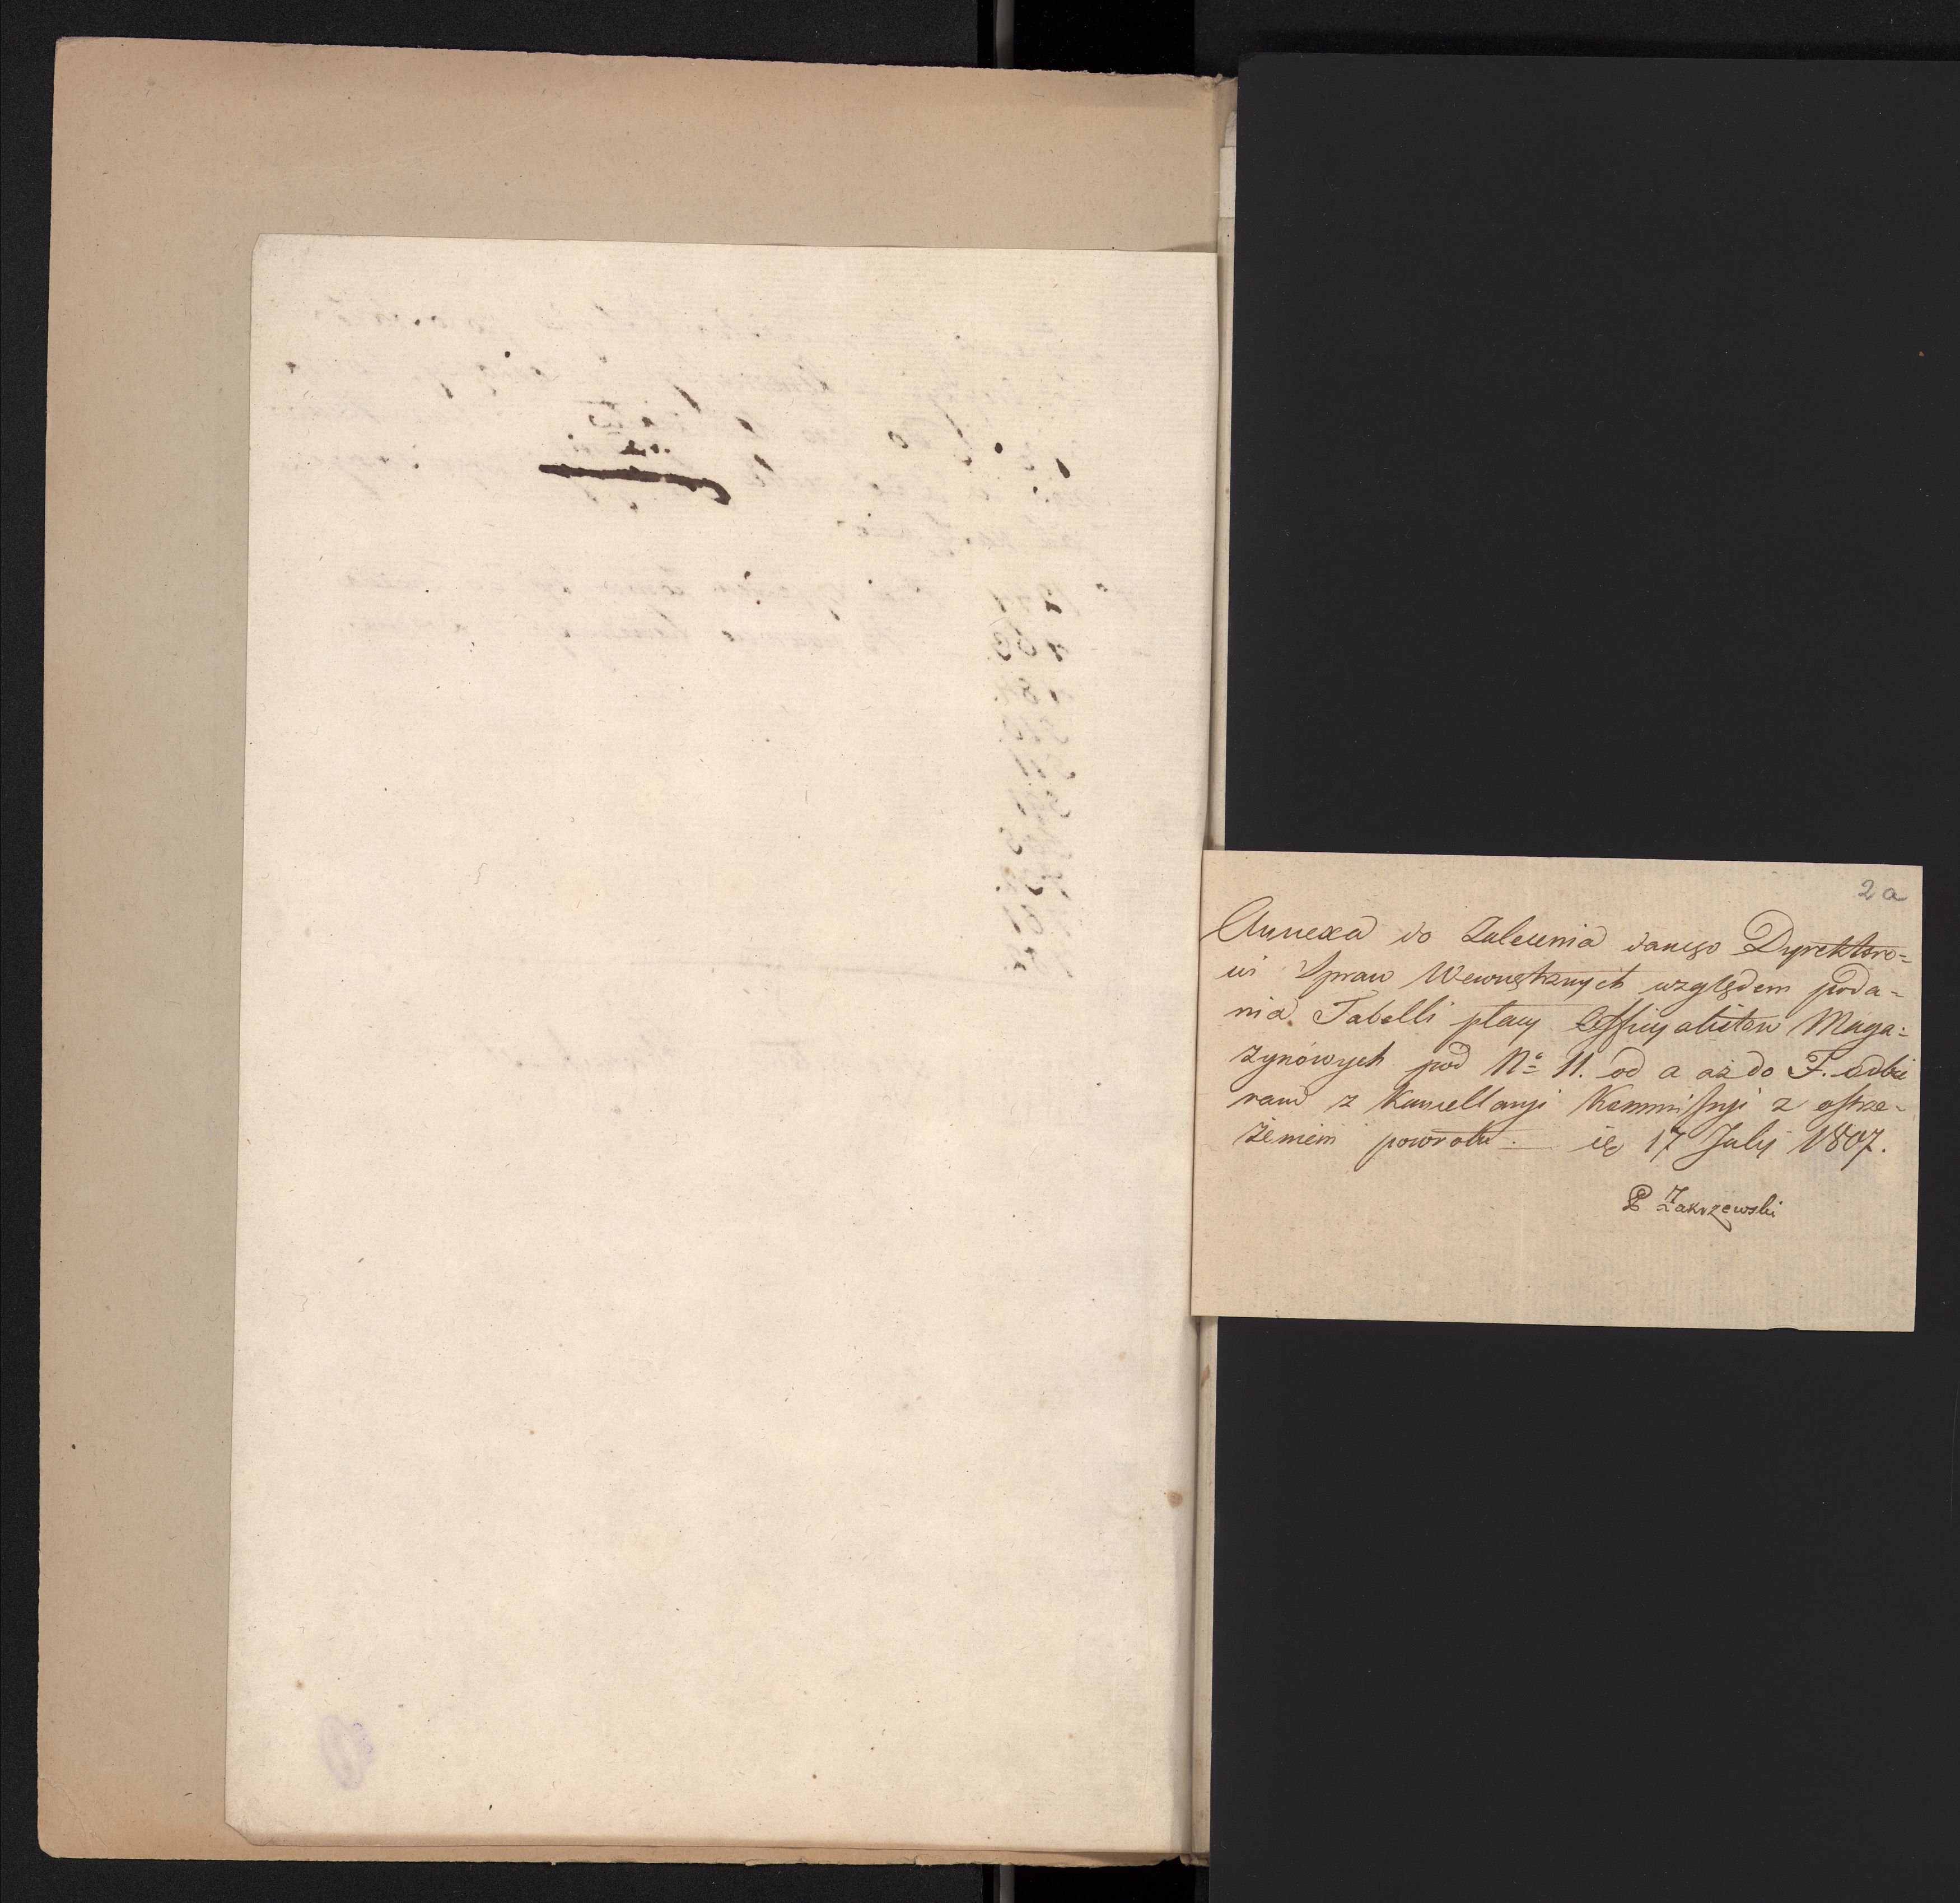 2a
Annexa do Zalecenia danego Dyrektoro=
wi Spraw Wewnętrznych względem poda=
nia Tabelli płacy Officyalistow Maga=
zynowych pod No 11. od a aż do F. odbie
ram z Kancellaryi Kommissyi z ostrze=
żeniem powrotu. — 17 July 1807.
P Zakrzewski